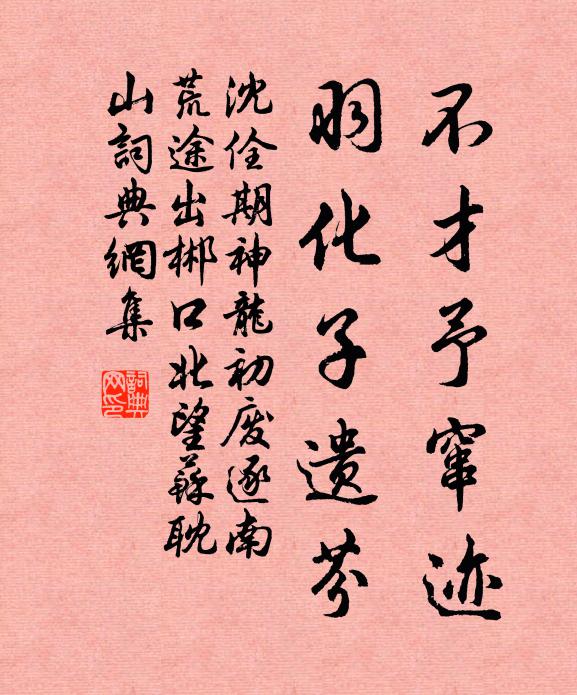 不才予窜迹
羽化子遗芬
沈佺期神龍初废逐南
荒途出郴口北望蘇耽
山詞典網集
詞典网印